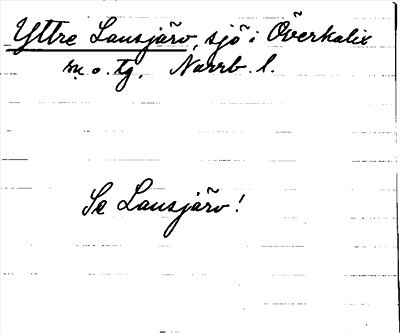 Yttre Lansjärv, sjö i Överkalix
sn. o. tg. Norrb. l.
Se Lansjärv!